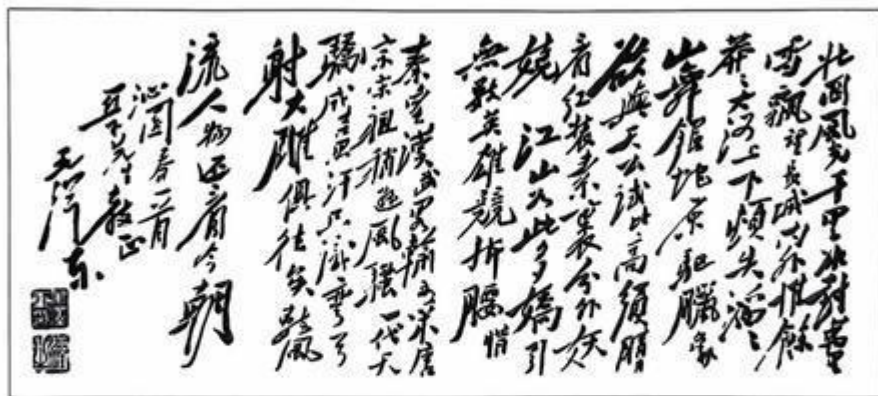 北國風光千里冰封萬里
雪飄望長城內外惟餘
莽〻大河上下頓失滔〻
山舞銀蛇原駆臘象
欲與天公試比高須晴日
看红装素裹分外妖
嬈 江山如此多嬌引
無數英雄競折腰惜
秦皇漢武略輸文采唐
宗宋祖稍遜風騷一代天
驕成吉思汗只識彎弓
射大雕俱往矣數風
流人物还看今朝
沁園春一首
亞子先生教正
毛澤东